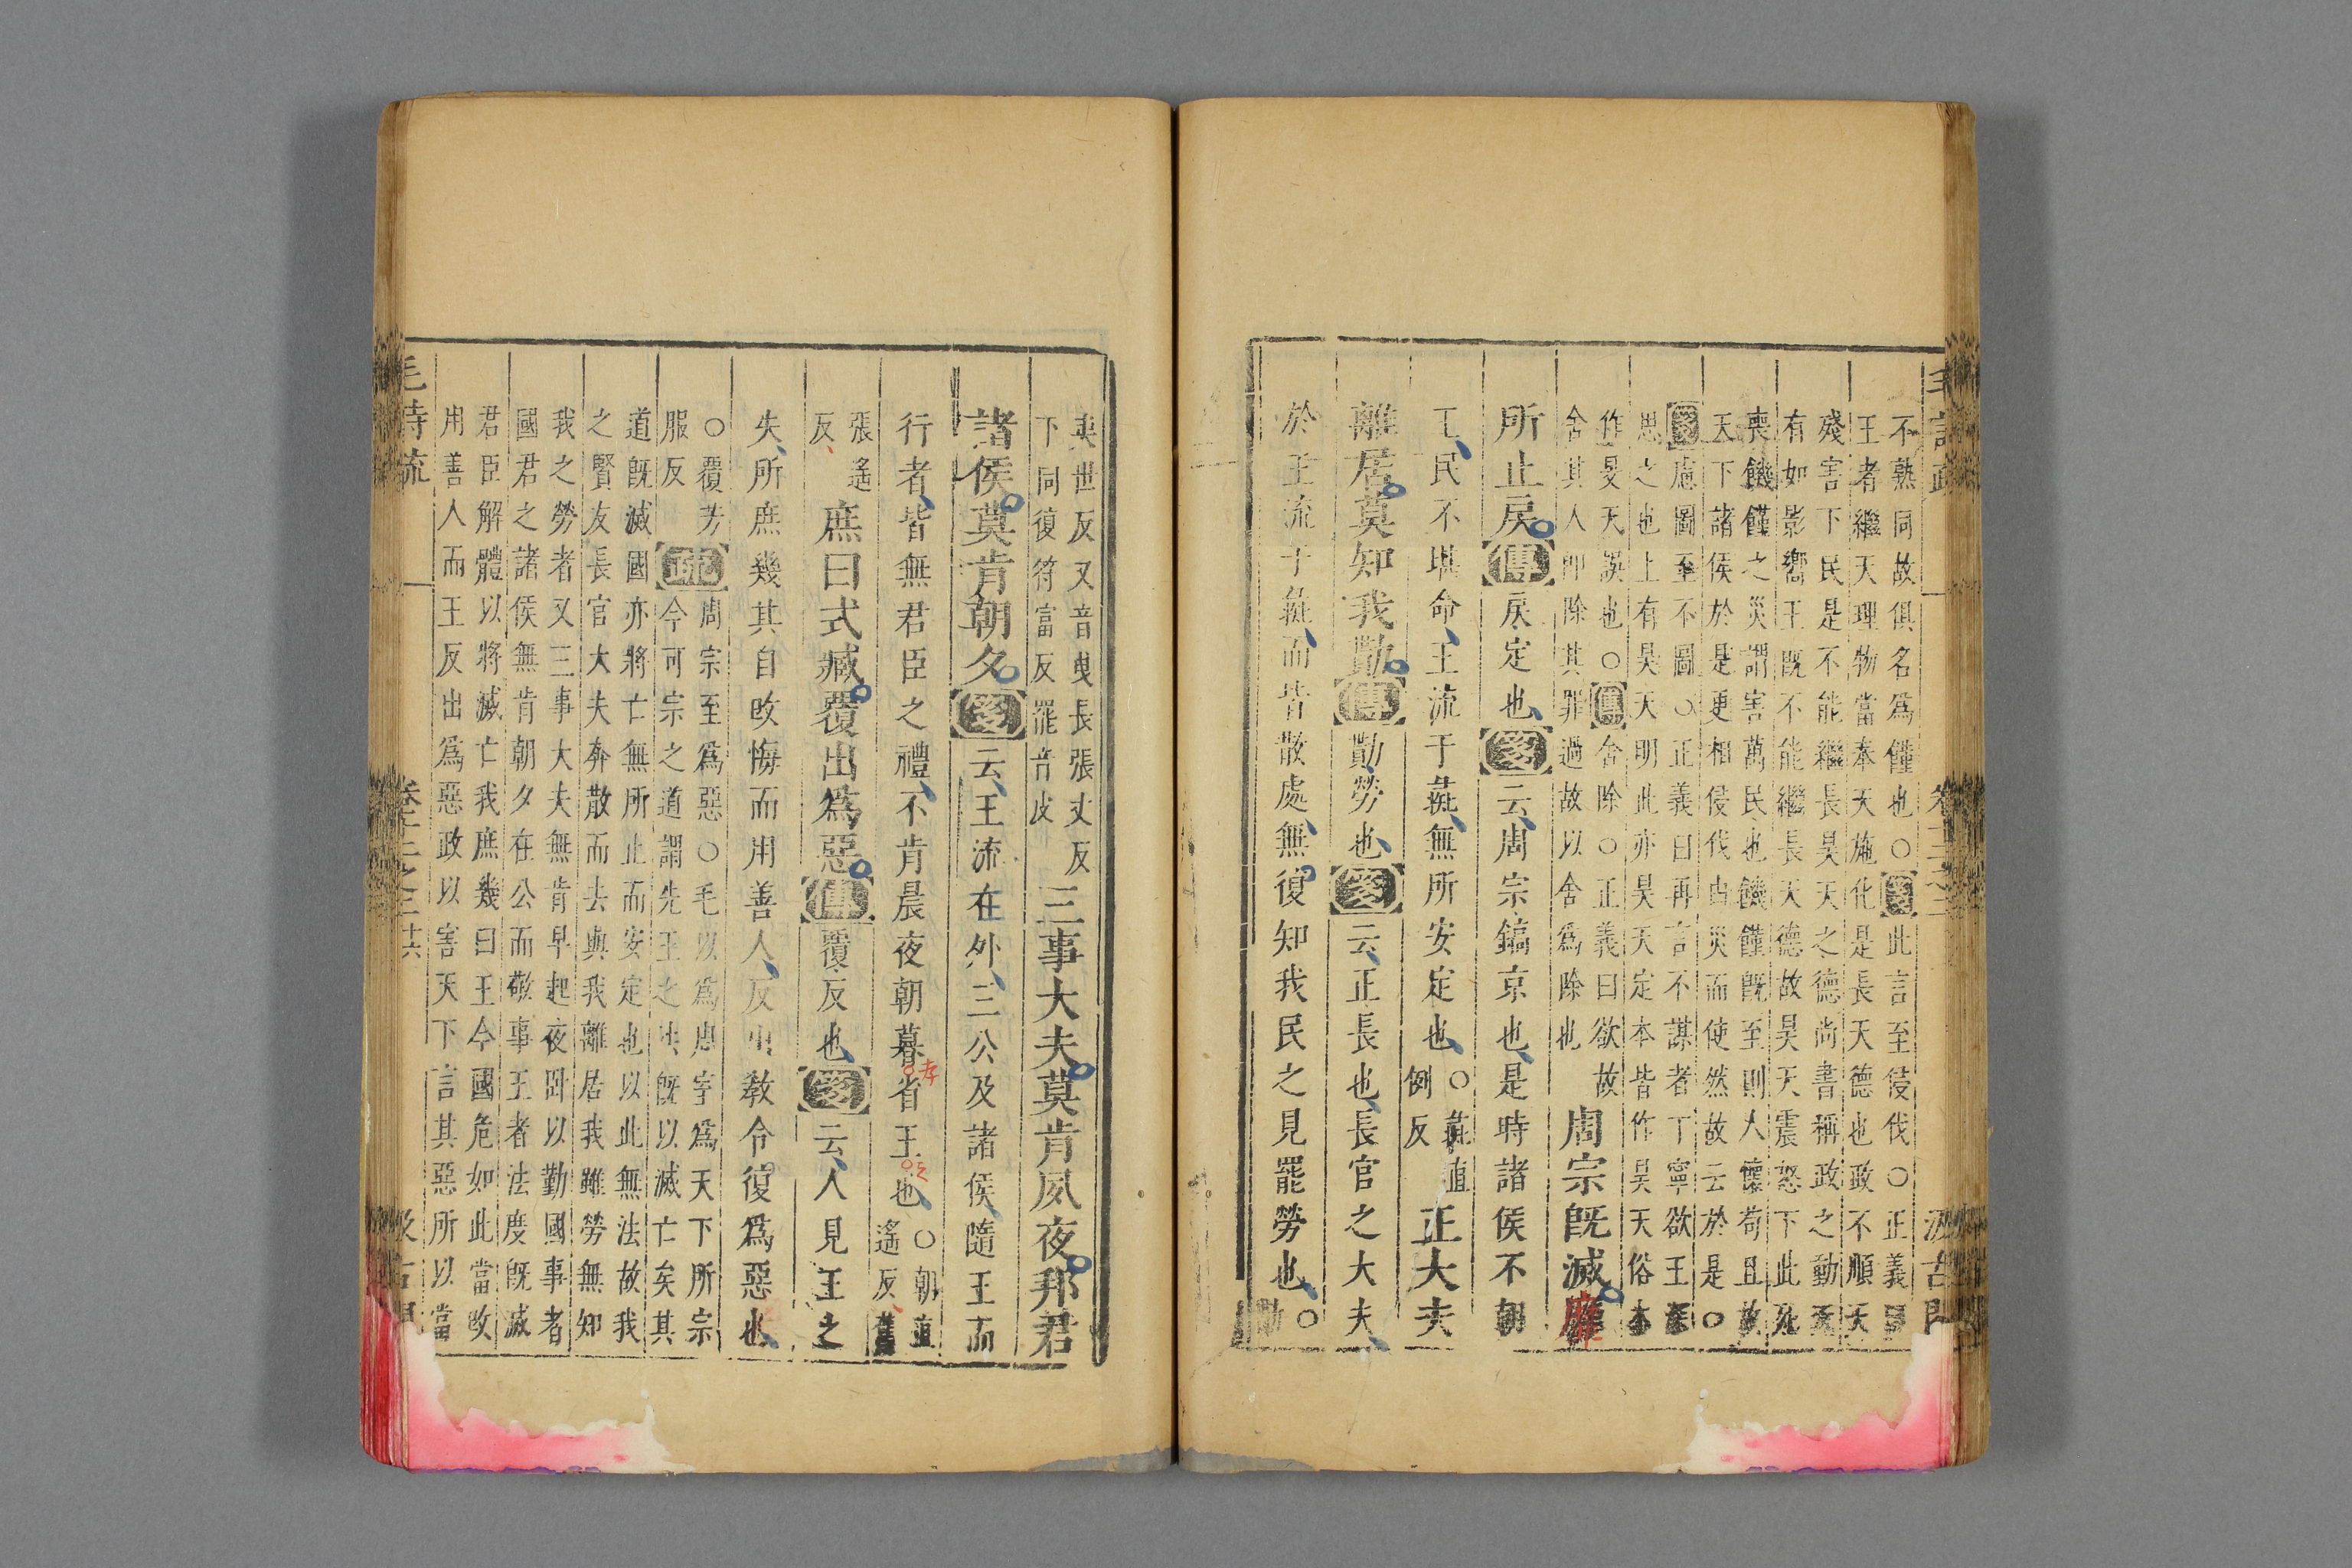 不熟同故俱名爲饉也○箋此言至侵伐○正義曰
王者繼天理物當奉天施化是長天德也政不順天
殘害下民是不能繼長昊天之德尚書稱政之動天
有如影嚮王旣不能繼長天德故昊天震怒下此死
喪饑饉之災謂害萬民也饑饉旣至則人懷苟且故
天下諸侯於是更相侵伐由災而使然故云於是○
箋慮圖至不圖○正義曰再言不謀者丁寧欲王深
思之也上有昊天明此亦昊天定本皆作昊天俗本
作旻天誤也○傳舍除○正義曰欲故
舍其人卽除其罪過故以舍爲除也
周宗旣滅靡
所止戾傳戾定也箋云周宗鎬京也是時諸侯不朝
王民不堪命王流于彘無所安定也○彘直例反正大夫
離居莫知我勩傳勩勞也箋云正長也長官之大夫
於王流于彘而皆散處無復知我民之見罷勞也○勩
夷世反又音曳長張丈反
下同復符富反罷音皮
三事大夫莫肯夙夜邦君
諸侯莫肯朝夕箋云王流在外三公及諸侯隨王而
行者皆無君臣之禮不肯晨夜朝暮省王也○朝直遙反舊
張遙反庶曰式臧覆出爲惡傳覆反也箋云人見王之
失所庶幾其自改悔而用善人反出敎令復爲惡也
○覆芳服反疏周宗至爲惡○毛以爲周宇爲天下所宗
今可宗之道謂先王之法旣以滅亡矣其
道旣滅國亦將亡無所止而安定也以此無法故我
之賢友長官大夫奔散而去與我離居我雖勞無知
我之勞者又三事大夫無肯早起夜臥以勤國事者
國君之諸侯無肯朝夕在公而敬事王者法度旣滅
君臣解體以將滅亡我庶幾曰王今國危如此當改
用善人而王反出爲惡政以害天下言其惡所以當
毛詩疏
卷十二之二
十六
汲古閣